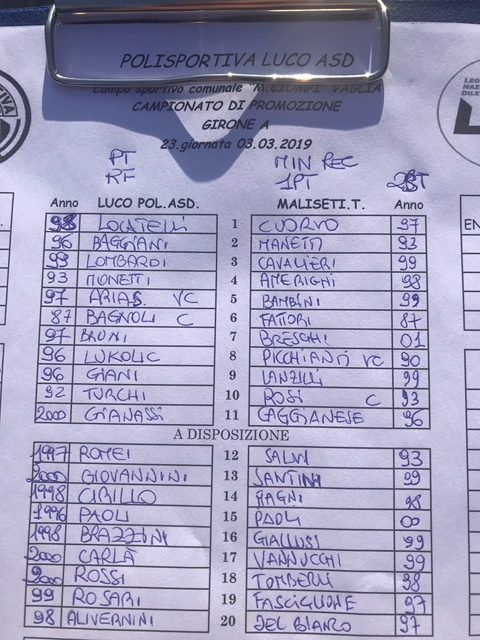 POLISPORTIVA LUCO ASD
Campo sportivo comunale "M.CIOMPI" VAGLIA
CAMPIONATO DI PROMOZIONE
GIRONE A
23.giornata 03.03.2019
PT MIN REC
RF 1PT 2ST
Anno LUCO POL.ASD. MALISETI.T. Anno
98 LOCATELLI 1 CUORVO 97
96 BAGGIANI 2 MANETTI 93
99 LOMBARDI 3 CAVALIERI 99
93 MONETTI 4 AMERIGHI 98
97 ARIAS VC 5 BAMBINI 99
87 BAGNOLI C 6 FATTORI 87
97 BRUNI 7 BRESCHI 01
96 LUKOLIC 8 PICCHIANTI VC 90
96 GIANI 9 LANZILLI 99
92 TURCHI 10 ROSI C 93
2000 GIANASSI 11 GAGGIANESE 96
A DISPOSIZIONE
1997 ROMEI 12 SALVI 93
2000 GIOVANNINI 13 SANTINI 99
1998 CIRILLO 14 MAGNI 98
1996 PAOLI 15 PAOLI 00
1998 BRAZZINI 16 GIALLUSI 99
2000 CARLÀ 17 VANNUCCHI 99
2000 ROSSI 18 TOMBERLI 98
99 ROSARI 19 FASCIGLIONE 97
98 ALIVERNINI 20 DEL BIANCO 97